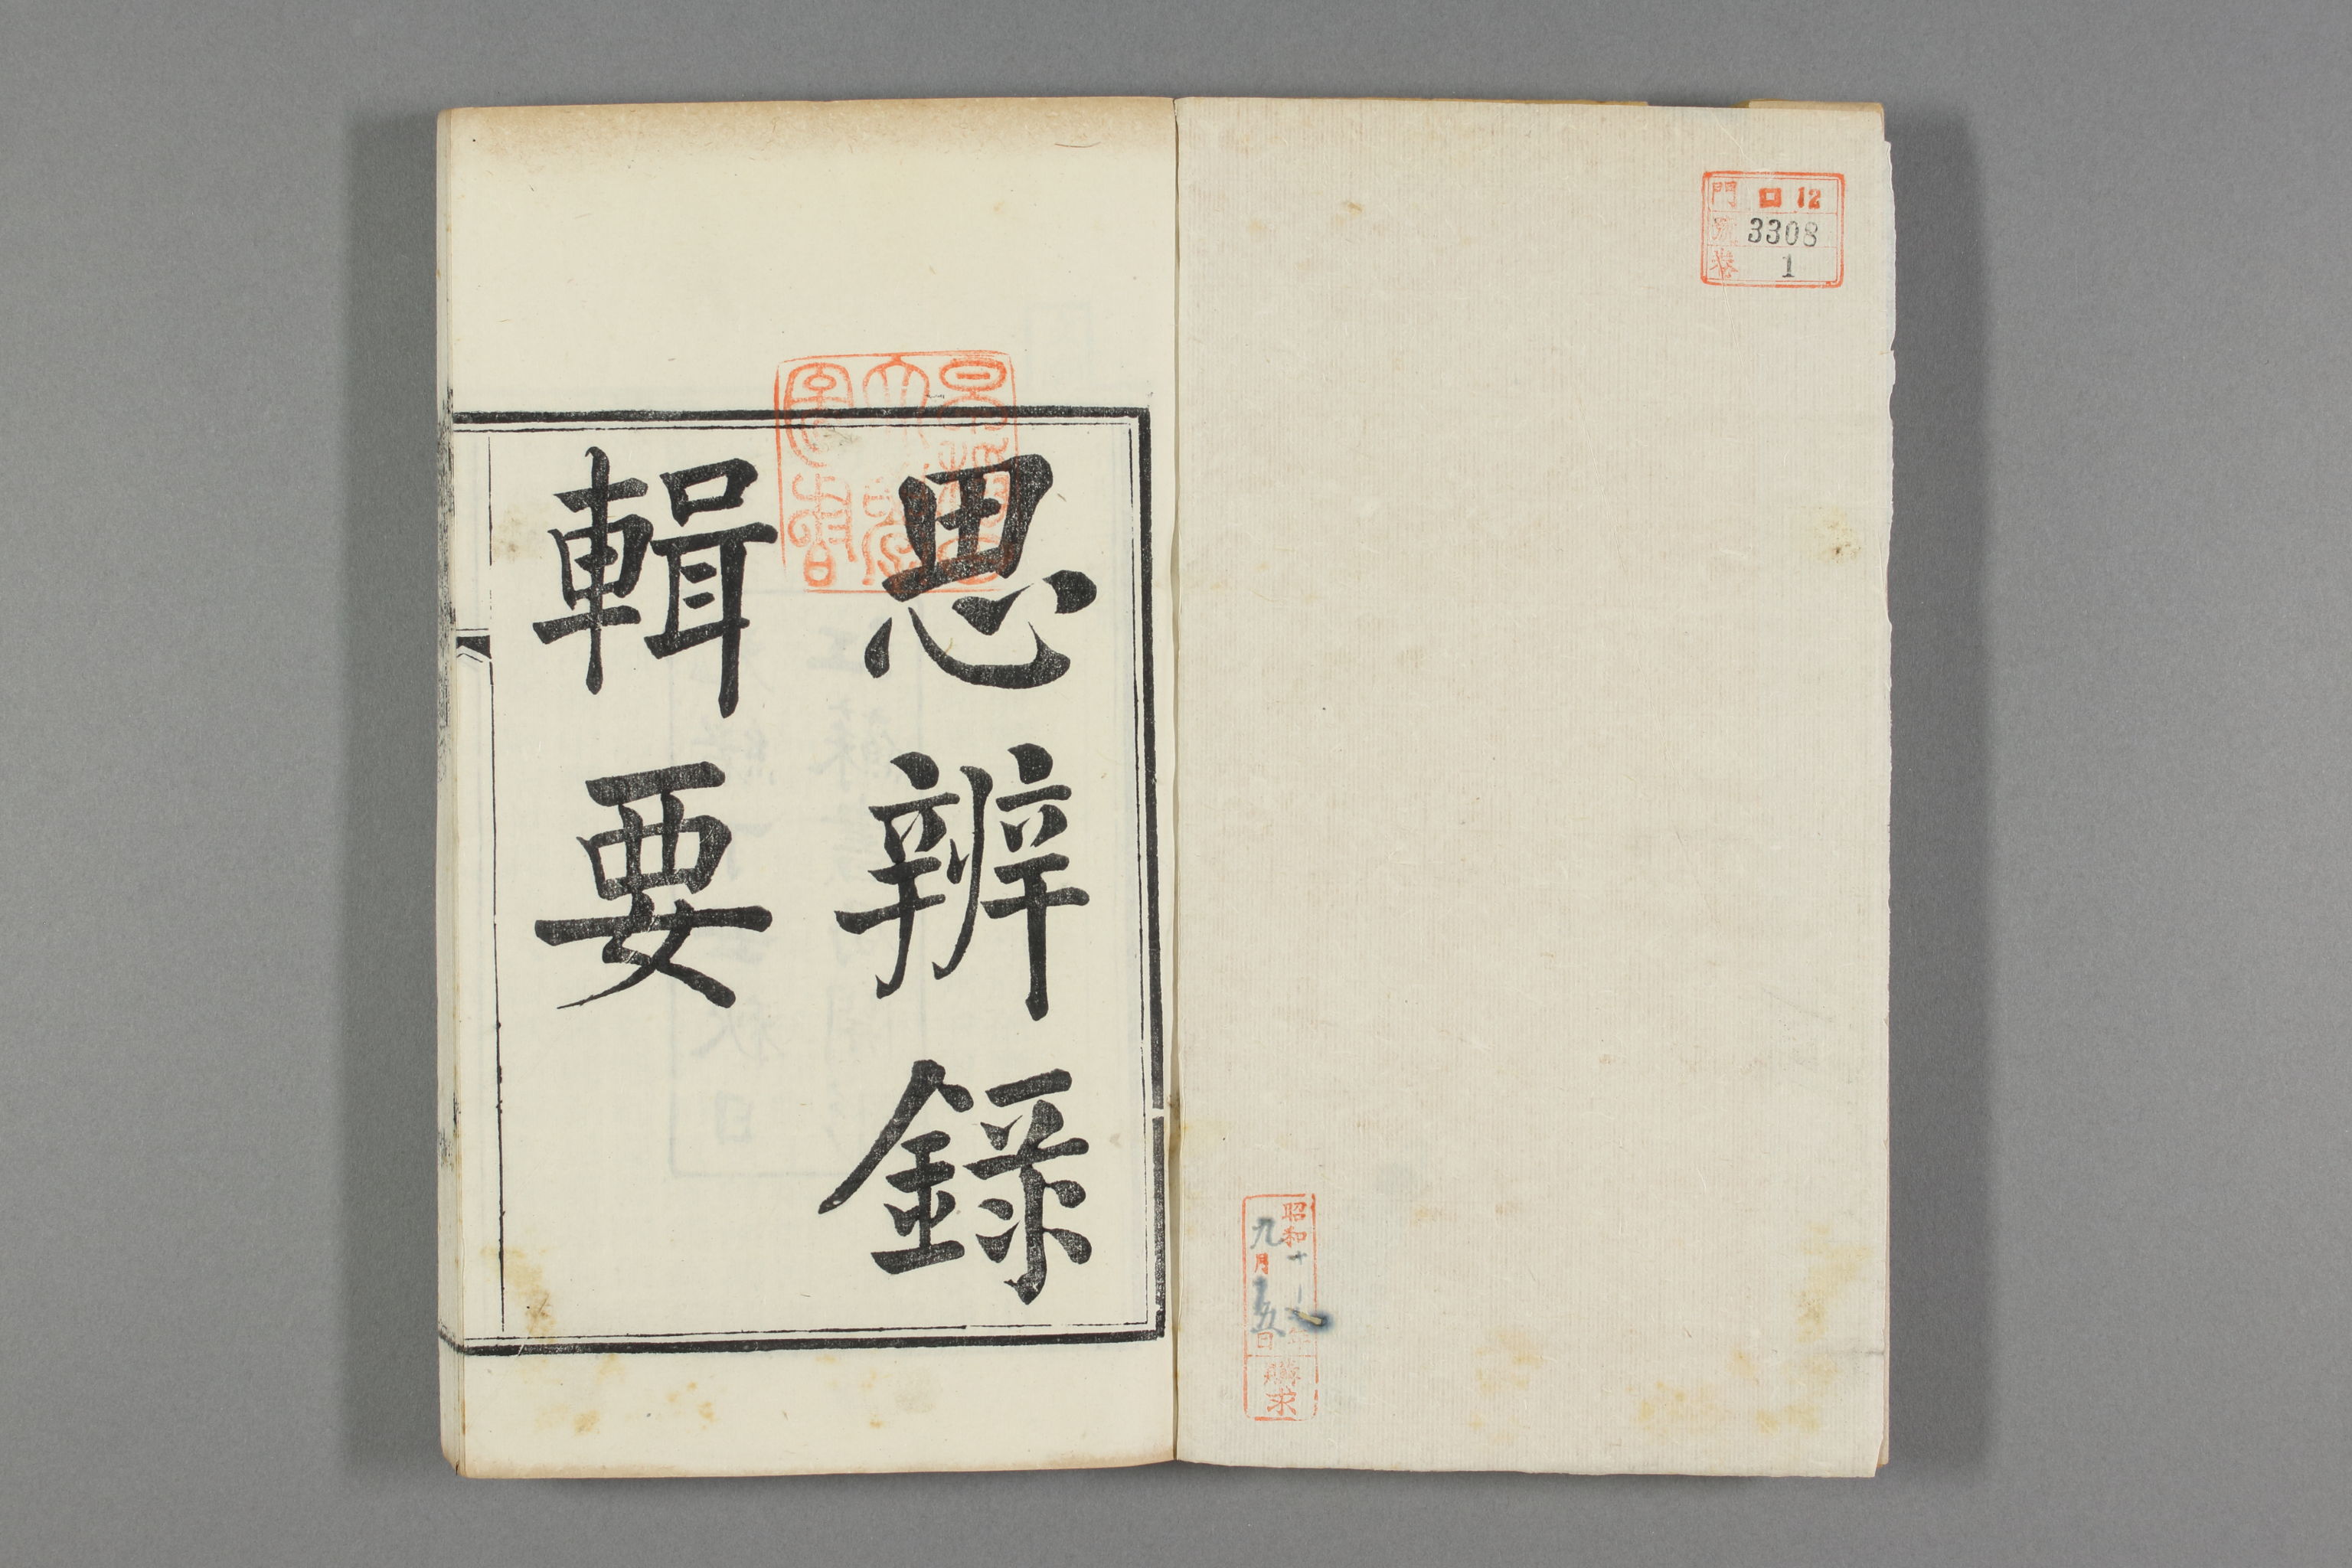 門 ロ 12
號 3308
卷 1
昭和十一年
九月十五日
購求
思辨錄
輯要